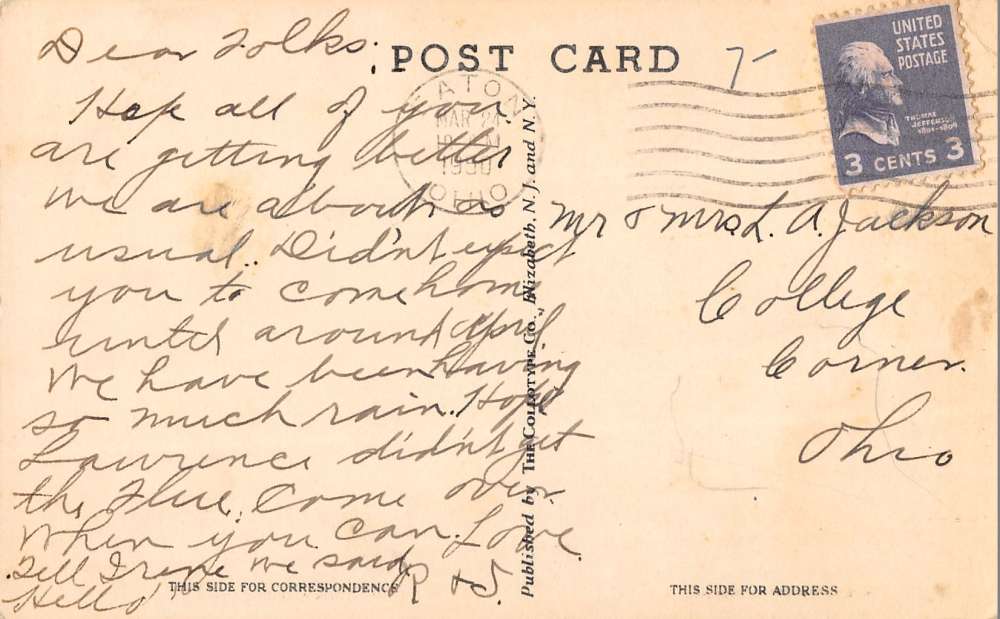 Dear Folks:
Hope all of you
are getting better
we are about as
usual. Didn't expect
you to come home
until around April
We have been having
so much rain. Hope
Lawrence didn't get
the Flue. Come over
when you can. Love
R & S.
Tell Irene we said
Hello
POST CARD
7-
EATON
MAR 24
OHIO
UNITED
STATES
POSTAGE
THOMAS
JEFFERSON
1801-1809
3 CENTS 3
Mr & Mrs L. A. Jackson
College
Corner.
Ohio
Published by THE COLLOTYPE CO., Elizabeth, N. J. and N. Y.
THIS SIDE FOR CORRESPONDENCE
THIS SIDE FOR ADDRESS